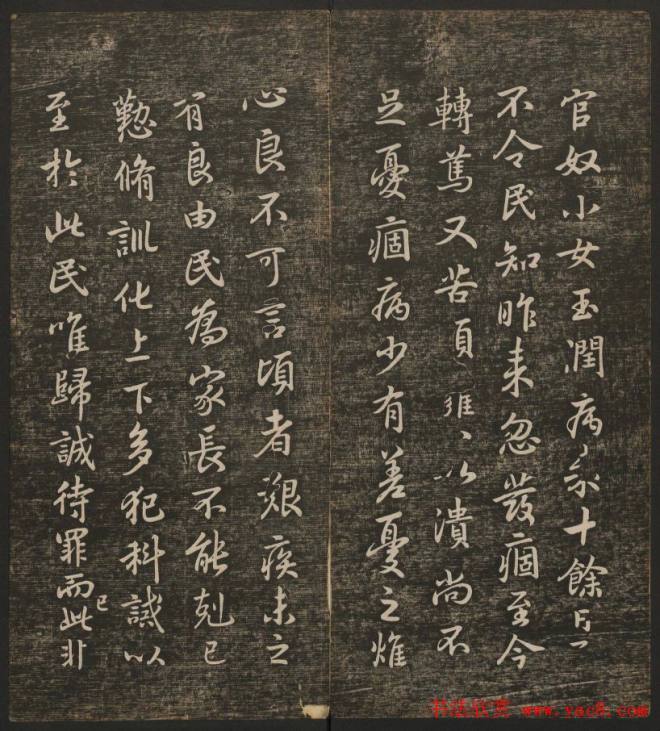 官奴小女玉潤病來十餘日
不令民知昨來忽發痼至今
轉篤又苦頭癰、以潰尚不
足憂痼病少有差憂之燋
心良不可言頃者艱疾未之
有良由民為家長不能剋己
懃脩訓化上下多犯科誡以
至於此民唯歸誠待罪而此非
已
书法欣赏 www.yac8.com